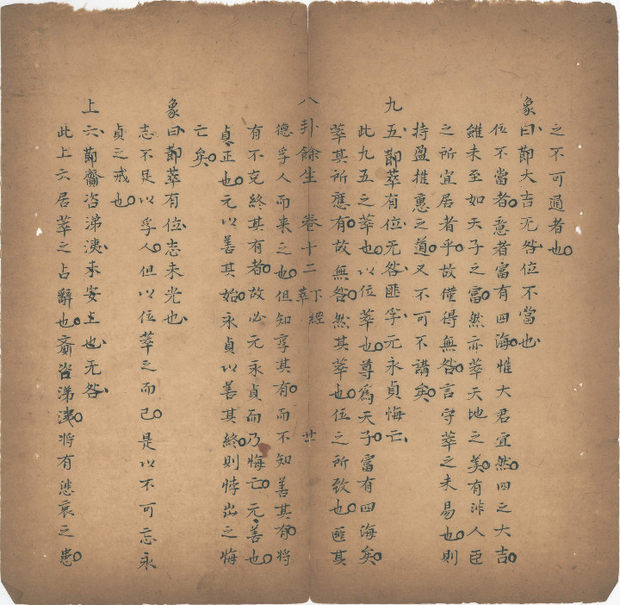 之不可過者也
象曰節大吉无咎位不當也
位不當者意者富有四海惟大君宜然四之大吉
雖未至如天子之富然亦萃天地之美有非人臣
之所宜居者乎故僅得無咎言守萃之未易也則
持盈推惠之道又不可不講矣
九五節萃有位无咎匪孚元永貞悔亡
此九五之萃也以位萃也尊為天子富有四海矣
萃其所應有故無咎然其萃也位之所致也匪其
八卦餘生 卷十二 下經 萃 廿
德孚人而来之也但知享其有而不知善其有将
有不克終其有者故必元永貞而乃悔亡元善也
貞正也元以善其始永貞以善其終則悖出之悔
亡矣
象曰節萃有位志未光也
志不足以孚人但以位萃之而已是以不可忘永
貞之戒也
上六節齎咨涕洟未安上也无咎
此上六居萃之占辭也齎咨涕洟将有悲哀之患